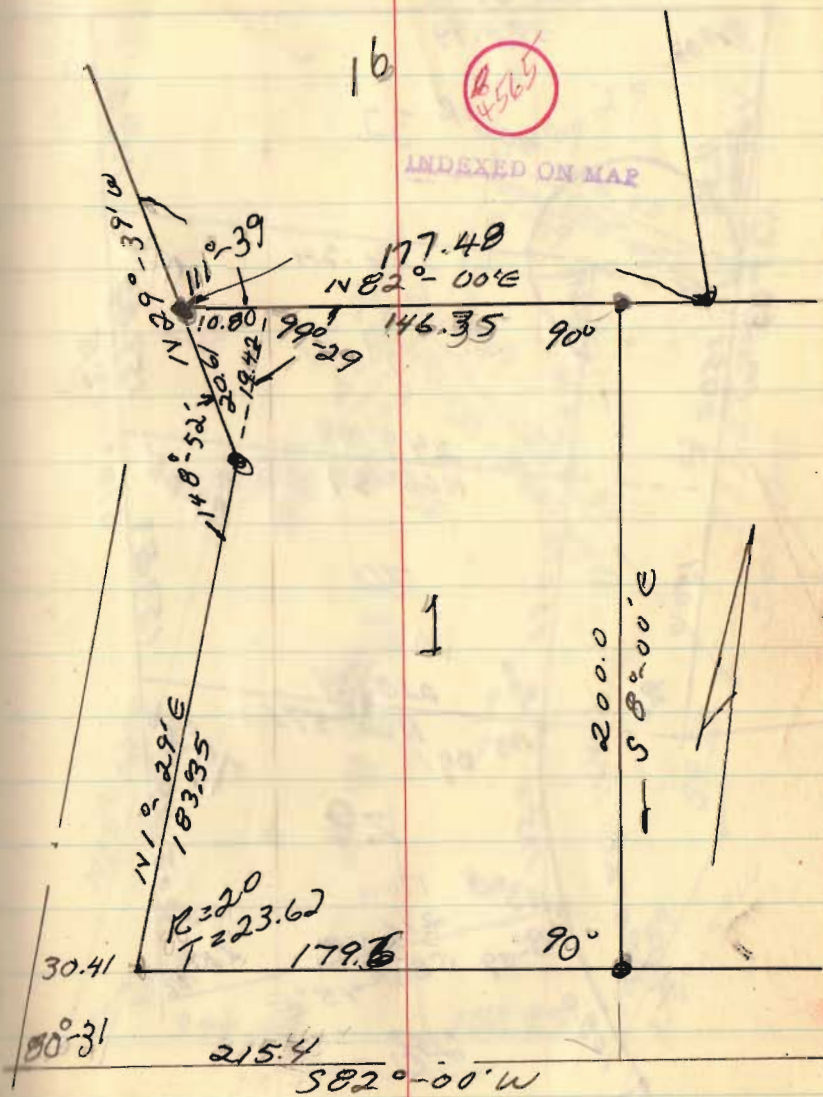 16
B
4565
INDEXED ON MAP
N 29°-39' W
111°-39
177.48
N 82°-00'E
10.80
99°
-29
146.35
90°
20.61
19.42
148°-52'
1
200.0
S 8°-00'E
N 1°-29'E
183.35
R=20
T=23.62
30.41
90°
80°-31
215.4
S82°-00'W